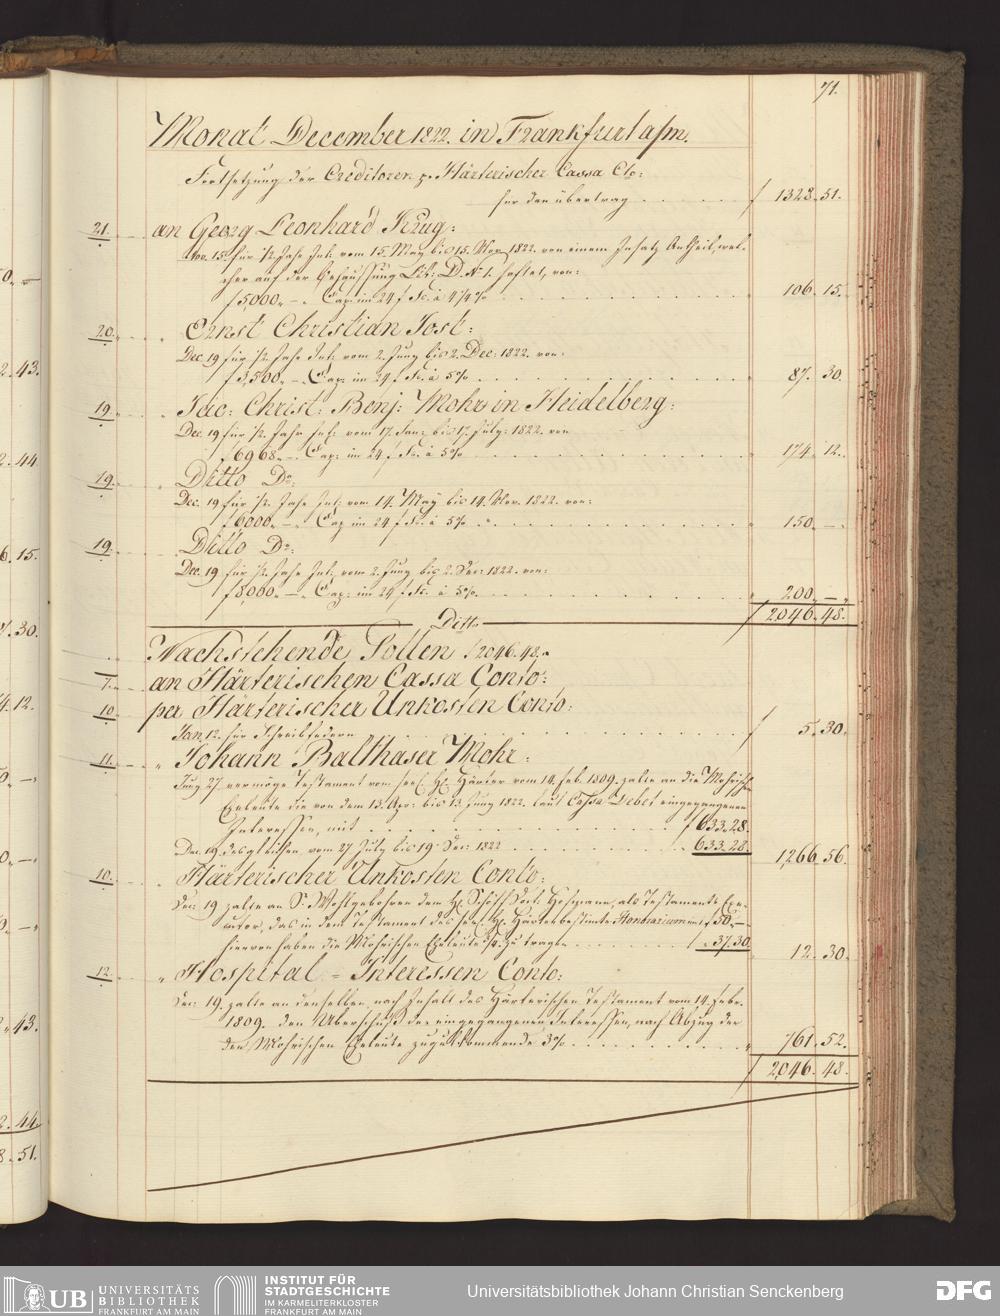 71.
Monat December 1822. in Frankfurt a/m.
Fortsetzung der Creditoren p. Härterischer Cassa Cto:
für den übertrag . . . . . f 1328. 51.
21. an Georg Leonhard Krug:
Nov. 15. für ½ Jahr Int: vom 15. May bis 15. Nov. 1822. von einem Insatz Antheil, wel-
cher auf der Behaussung Lit: D. No 1. haftet, von:
f 5,000. — . Cap: im 24 f Fs. à 4¼ % . . . . . 106. 15.
20. " Ernst Christian Jost:
Dec. 19 für ½ Jahr Int: vom 2. Juny bis 2. Dec: 1822. von:
f 3,500. — . Cap: im 24 f Fs. à 5 % . . . . . 87. 30.
19. " Jac: Christ: Benj: Mohr in Heidelberg:
Dec. 19 für ½ Jahr Int: vom 17. Jan: bis 17. July: 1822. von
f 6968. — . Cap: im 24 f Fs. à 5 % . . . . . 174. 12.
19. " Ditto Do:
Dec. 19 für ½ Jahr Int: vom 14. May bis 14. Nov. 1822. von:
f 6,000. — . Cap im 24 f Fs. à 5 % . . . . . 150. —
19. " Ditto Do:
Dec. 19 für ½ Jahr Int: vom 2. Juny bis 2. Dec: 1822. von:
f 8,000. — . Cap: im 24 f Fs. à 5 % . . . . . 200. —
f 2,046. 48.
Ditto
Nachstehende Sollen f 2046. 48.
7. an Härterischen Cassa Conto:
10. per Härterischer Unkosten Conto:
Jan. 12. für Schreibfedern . . . . . f 5. 30.
11. " Johann Balthaser Mohr:
Juny 27 vermöge Testament vom seel. H. Härter vom 14. Feb. 1809. zalte an die Mohrische
Eheleute die von dem 13. Apr: bis 13. Juny 1822. laut Cassa Debet eingegangenen
Interessen, mit . . . . . f 633. 28.
Dec. 19. desgleichen vom 27 July bis 19. Dec: 1822 . . . . . 633. 28. 1,266. 56.
10. " Härterischer Unkosten Conto:
Dec: 19 zalte an S. Wohlgebohren dem H. Schöff Doct: Hofmann, als Testaments Exe-
cutor, das in dem Testament des seel. H. Härter bestimte Honorarium mit f 50. —
hiervon haben die Mohrischen Eheleute ¾. zu tragen . . . . . " 37. 30. 12. 30.
12. " Hospital = Interessen Conto:
Dec: 19. zalte an denselben nach Inhalt des Härterischen Testament vom 14. Febr.
1809. den Ueberschuß der eingegangenen Interessen, nach Abzug der
den Mohrischen Eheleute zugutkommende 3 % . . . . . 761. 52.
f 2,046. 48.
43.
44.
15.
30.
12.
43.
44.
51.
UB UNIVERSITÄTS
BIBLIOTHEK
FRANKFURT AM MAIN
INSTITUT FÜR
STADTGESCHICHTE
IM KARMELITERKLOSTER
FRANKFURT AM MAIN
Universitätsbibliothek Johann Christian Senckenberg
DFG